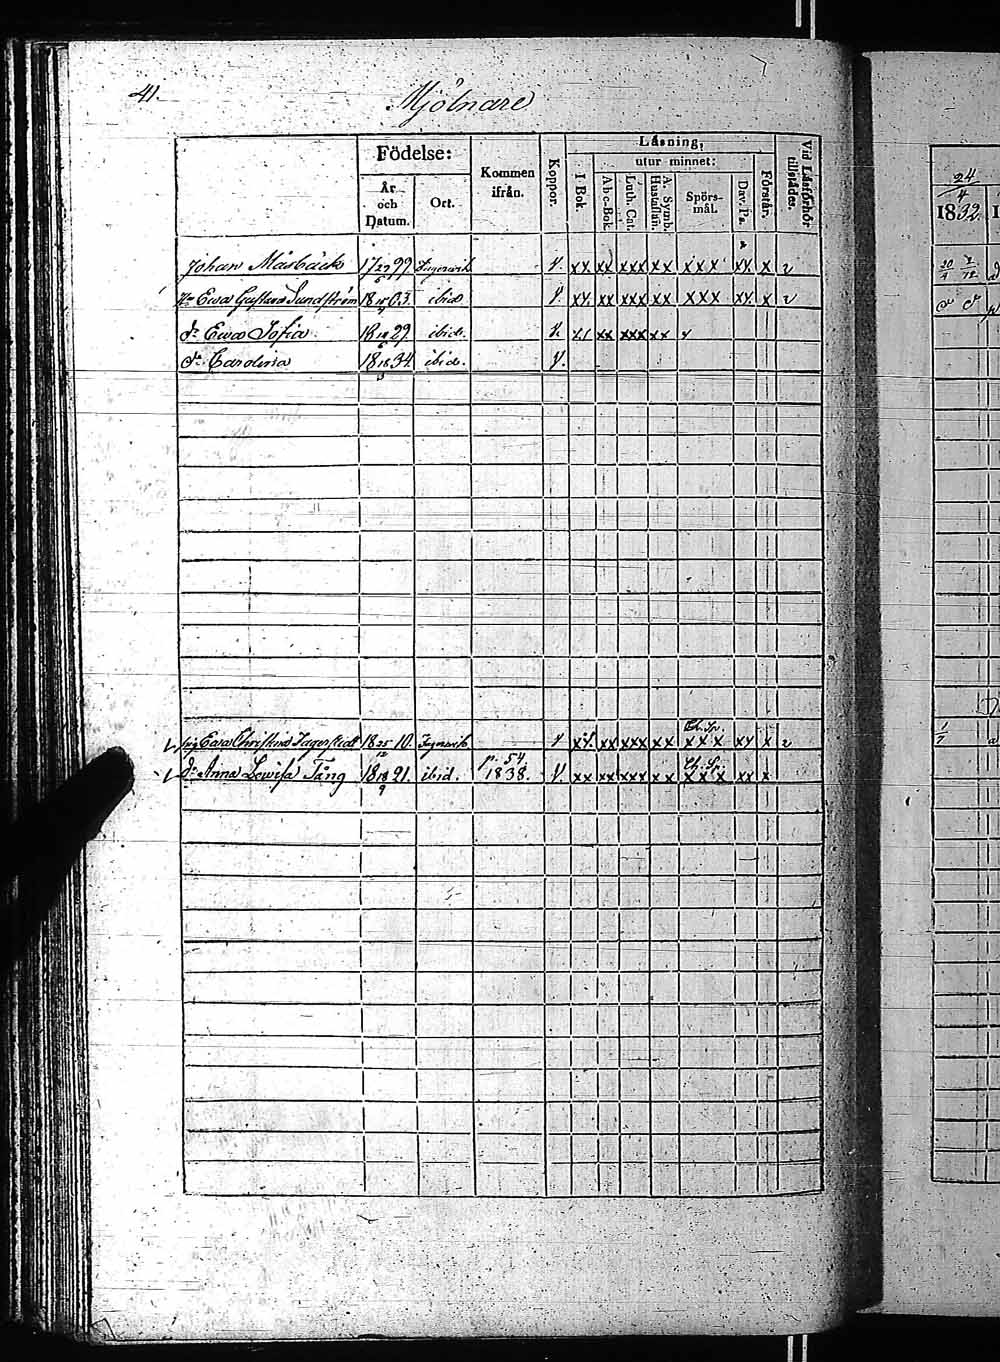 41.
Mjölnare
Födelse:
År och Datum.
Ort.
Kommen ifrån.
Koppor.
Läsning,
I Bok.
utur minnet:
Abc-Bok
Luth. Cat.
A. Symb. Hustaflan.
Spörsmål.
Dav. Ps.
Förstår.
Vid Läsförhör tillstädes.
Johan Måsbäck 17 27/6 99 v. xx xx xxx xx xxx xx x
Hu Ewa Gustava Sundström 18 03. ibid v. xx xx xxx xx xxx xx x
dr Ewa Sofia 18 29. ibid. xx xxx xx
dr Carolina 18 18 34. ibid. v.
Christina Jagerstedt 18 25/12 10. v xx xx xxx xx xxx xx x
dr Anna Lewisa Tång 18 18/9 21. ibid. p. 54 1838. v. xx xx xxx xx xxx xx x
24/4
1832.